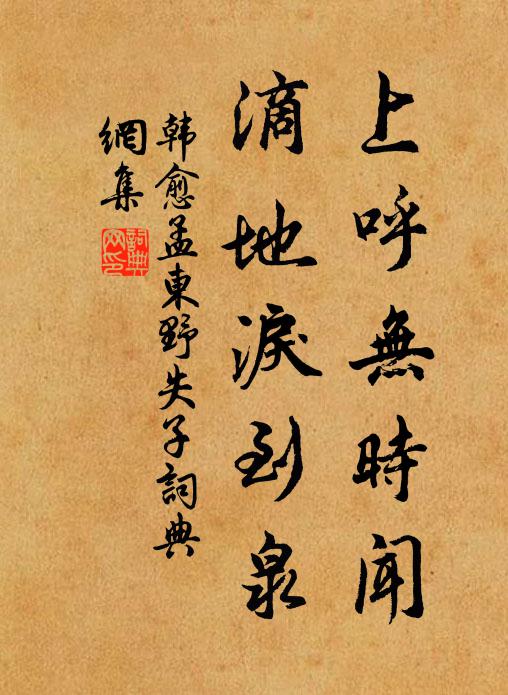 上呼無時聞
滴地淚到泉
韓愈孟東野失子詞典
網集
詞典網印